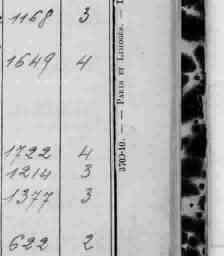 1168 3
1649 4
1722 4
1214 3
1377 3
622 2
370-10. — — PARIS ET LIMOGES. —